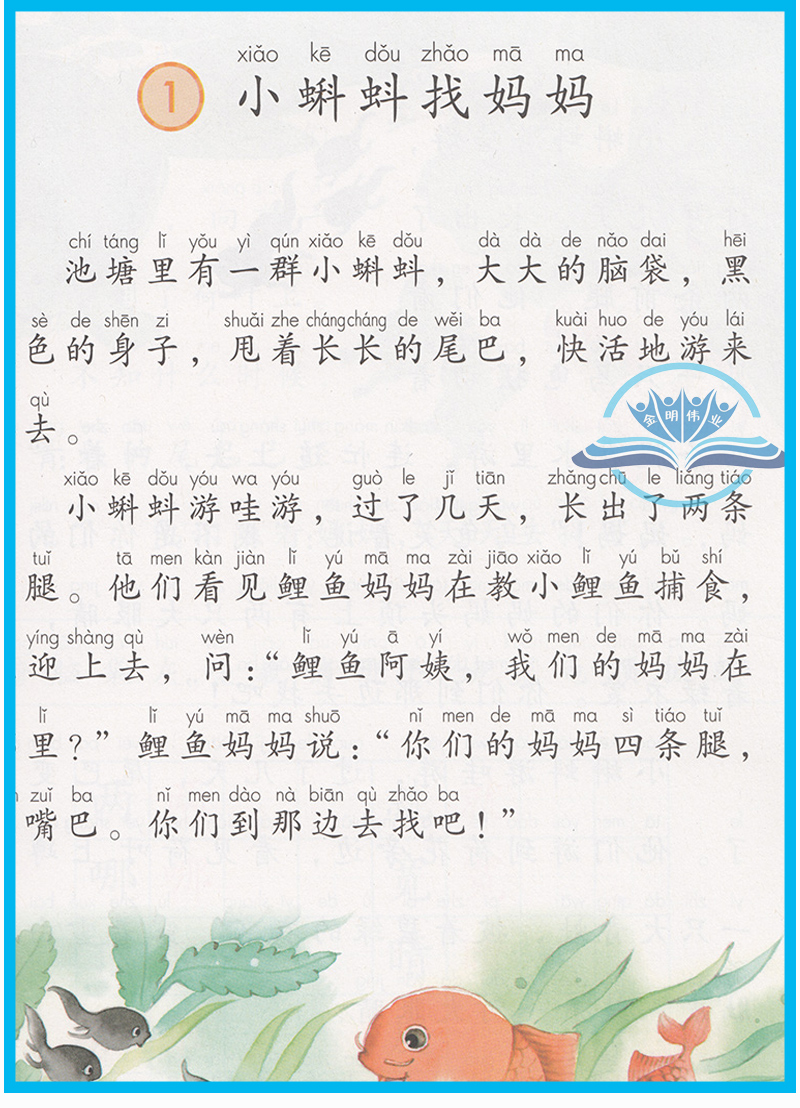 xiǎo kē dǒu zhǎo mā ma
1 小蝌蚪找妈妈
chí táng lǐ yǒu yì qún xiǎo kē dǒu dà dà de nǎo dai hēi
池塘里有一群小蝌蚪，大大的脑袋，黑
sè de shēn zi shuǎi zhe cháng cháng de wěi ba kuài huo de yóu lái
色的身子，甩着长长的尾巴，快活地游来
qù
去。
金明伟业
xiǎo kē dǒu yóu wa yóu guò le jǐ tiān zhǎng chū le liǎng tiáo
小蝌蚪游哇游，过了几天，长出了两条
tuǐ tā men kàn jiàn lǐ yú mā ma zài jiāo xiǎo lǐ yú bǔ shí
腿。他们看见鲤鱼妈妈在教小鲤鱼捕食，
yíng shàng qù wèn lǐ yú ā yí wǒ men de mā ma zài
迎上去，问：“鲤鱼阿姨，我们的妈妈在
lǐ lǐ yú mā ma shuō nǐ men de mā ma sì tiáo tuǐ
里？” 鲤鱼妈妈说：“你们的妈妈四条腿，
zuǐ ba nǐ men dào nà biān qù zhǎo ba
嘴巴。你们到那边去找吧！”